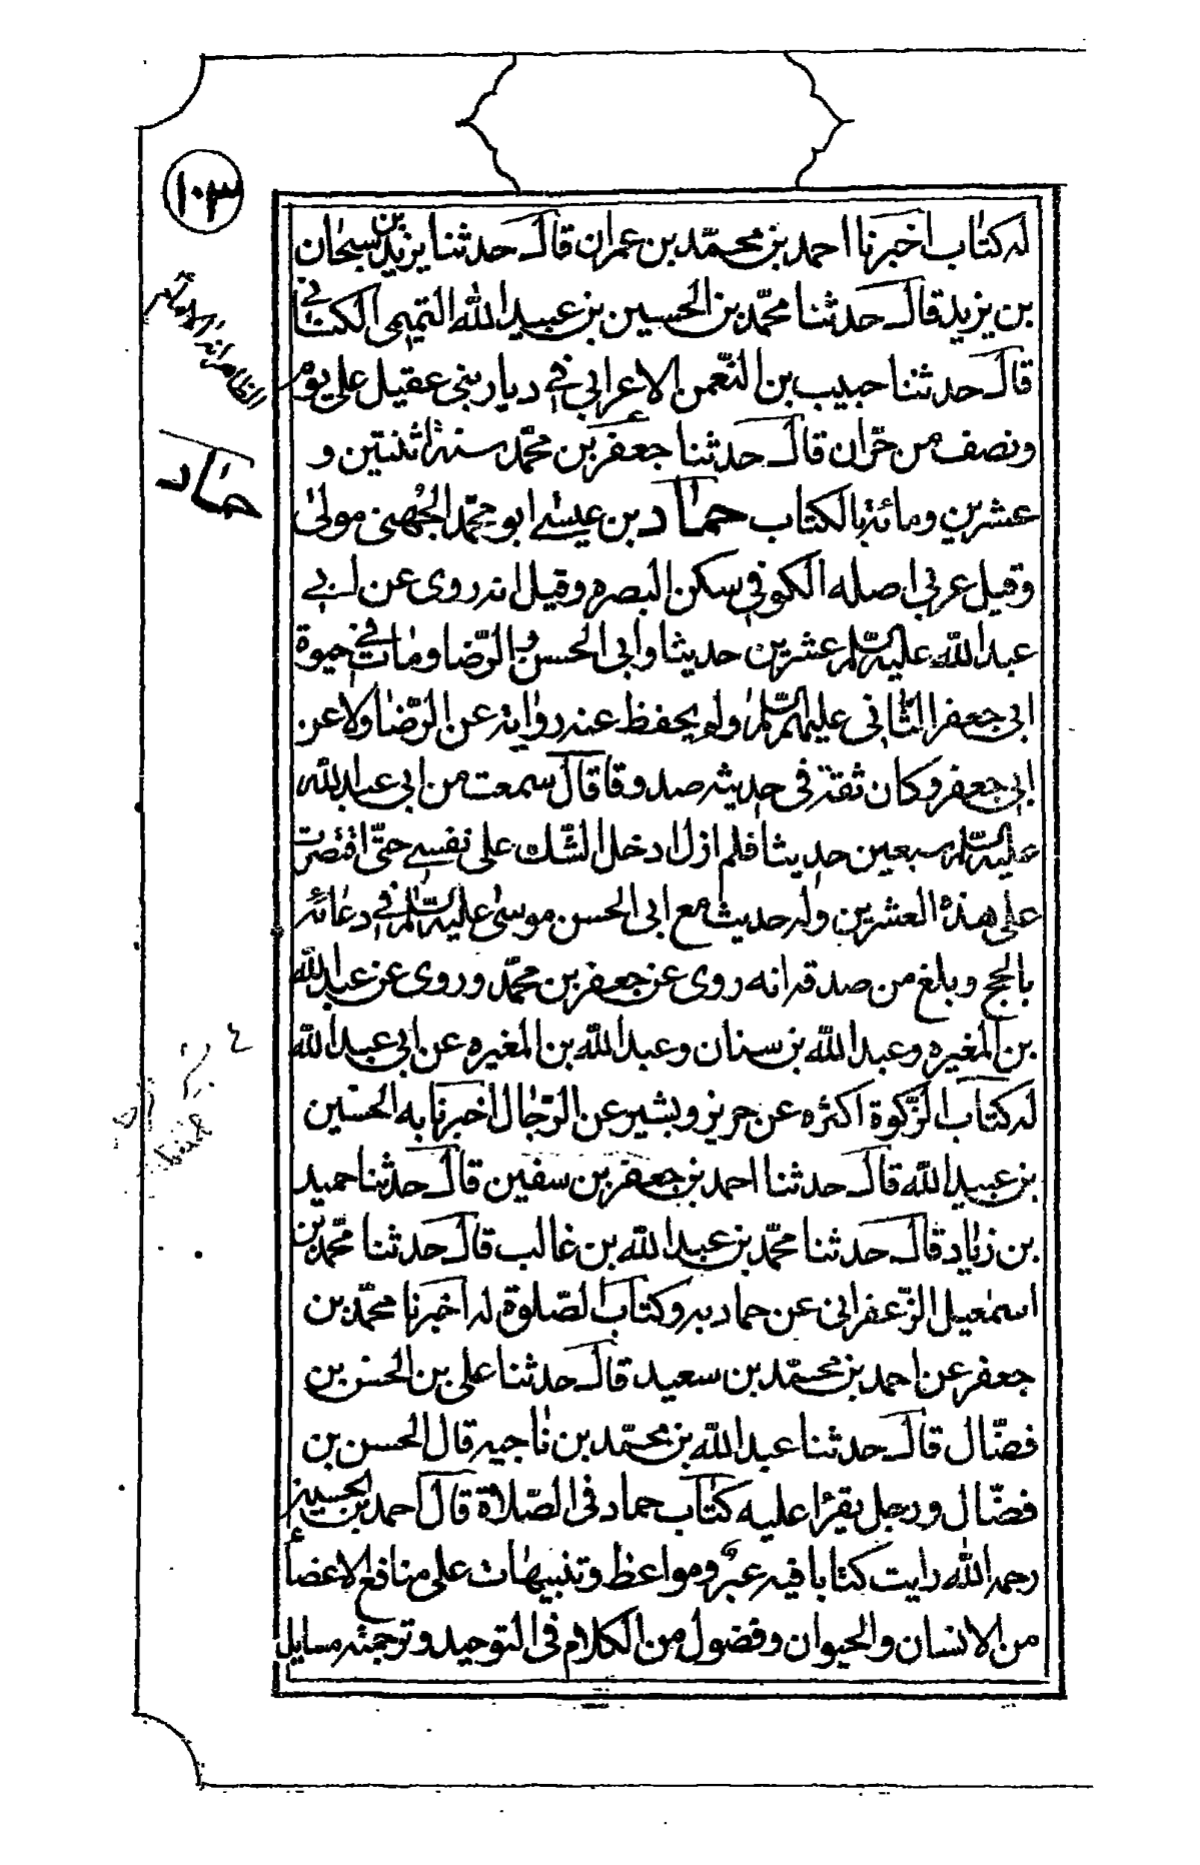 ١٠٣
له كتاب اخبرنا احمد بن محمّد بن عمران قال حدثنا يزيد بن سبحان
بن يزيد قال حدثنا محمّد بن الحسين بن عبيد الله التميمي الكتاني
قال حدثنا حبيب بن النّعمن الاعرابي في ديار بنى عقيل على يوم
ونصف من حرّان قال حدثنا جعفر بن محمّد سنة اثنتين و
عشرين ومائة بالكتاب حماد بن عيسى ابو محمّد الجُهني مولى
وقيل عربي اصله الكوفي سكن البصره وقيل انه روى عن ابي
عبد الله عليه السّلم عشرين حديثا وابى الحسن والرّضا ومات في حيوة
ابى جعفر الثّانى عليهما السّلم ولم يحفظ عنه رواية عن الرّضا ولا عن
ابى جعفر وكان ثقة فى حديثه صدوقا قال سمعت من ابى عبد الله
عليه السّلم سبعين حديثا فلم ازل ادخل الشّك على نفسي حتّى اقتصرت
على هذه العشرين وله حديث مع ابى الحسن موسى عليه السّلم في دعائه
بالحج وبلغ من صدقه انه روى عن جعفر بن محمّد وروى عن عبد الله
بن المغيره وعبد الله بن سنان وعبد الله بن المغيره عن ابى عبد الله
له كتاب الزّكوة اكثره عن حريز وبشير عن الرّجال اخبرنا به الحسين
بن عبيد الله قال حدثنا احمد بن جعفر بن سفين قال حدثنا حميد
بن زياد قال حدثنا محمّد بن عبد الله بن غالب قال حدثنا محمّد بن
اسمعيل الزّعفرانى عن حماد به وكتاب الصّلوة له اخبرنا محمّد بن
جعفر عن احمد بن محمّد بن سعيد قال حدثنا على بن الحسن بن
فضّال قال حدثنا عبد الله بن محمّد بن ناجيه قال الحسن بن
فضّال ورجل يقرا عليه كتاب حماد فى الصّلاة قال احمد بن الحسين
رحمه الله رايت كتابا فيه عبرٌ ومواعظ وتنبيهات على منافع الاعضا
من الانسان والحيوان وفضول من الكلام فى التوحيد وترجمته مسايل
حماد